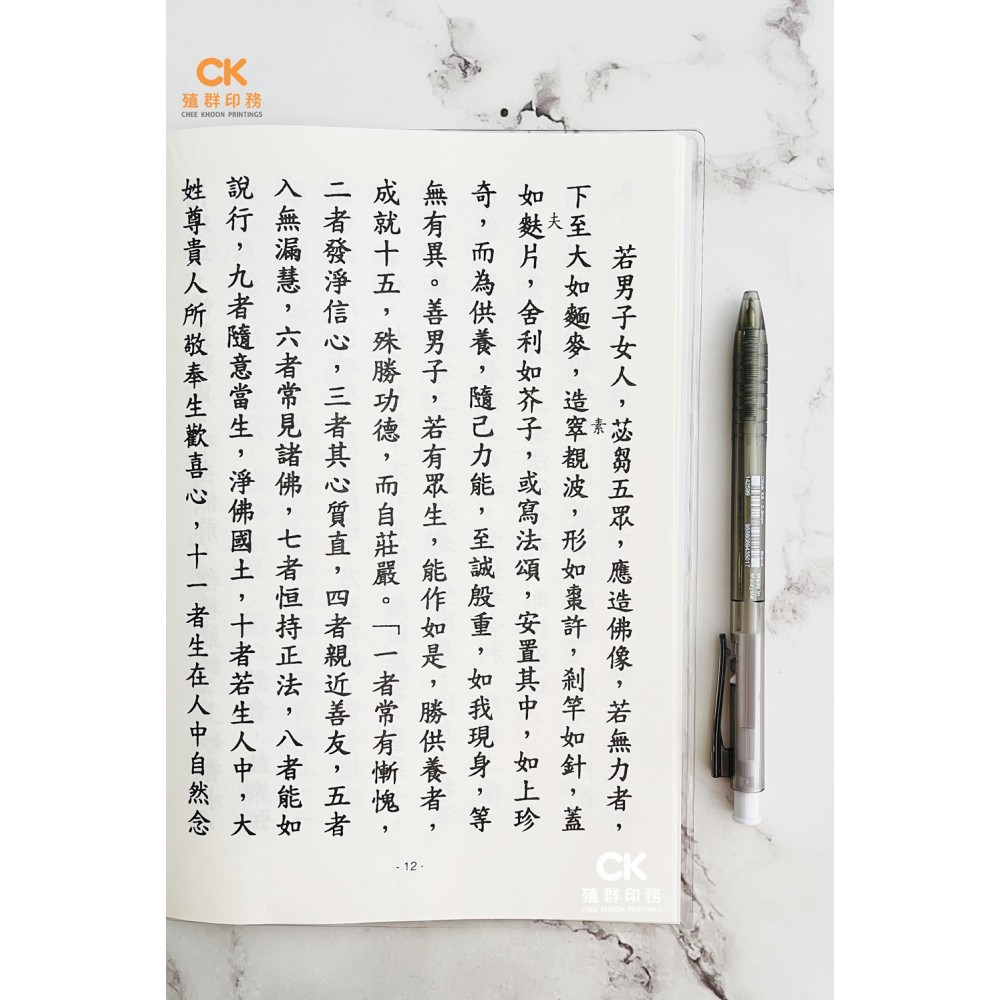 CK
殖群印務
CHEE KHOON PRINTINGS
若男子女人，苾芻五眾，應造佛像，若無力者，
下至大如麵麥，造窣覩波，形如棗許，剎竿如針，蓋
素
如麩片，舍利如芥子，或寫法頌，安置其中，如上珍
夫
奇，而為供養，隨己力能，至誠殷重，如我現身，等
無有異。善男子，若有眾生，能作如是，勝供養者，
成就十五，殊勝功德，而自莊嚴。「一者常有慚愧，
二者發淨信心，三者其心質直，四者親近善友，五者
入無漏慧，六者常見諸佛，七者恒持正法，八者能如
說行，九者隨意當生，淨佛國土，十者若生人中，大
姓尊貴人所敬奉生歡喜心，十一者生在人中自然念
- 12 -
CK
殖群印務
CHEE KHOON PRINTINGS